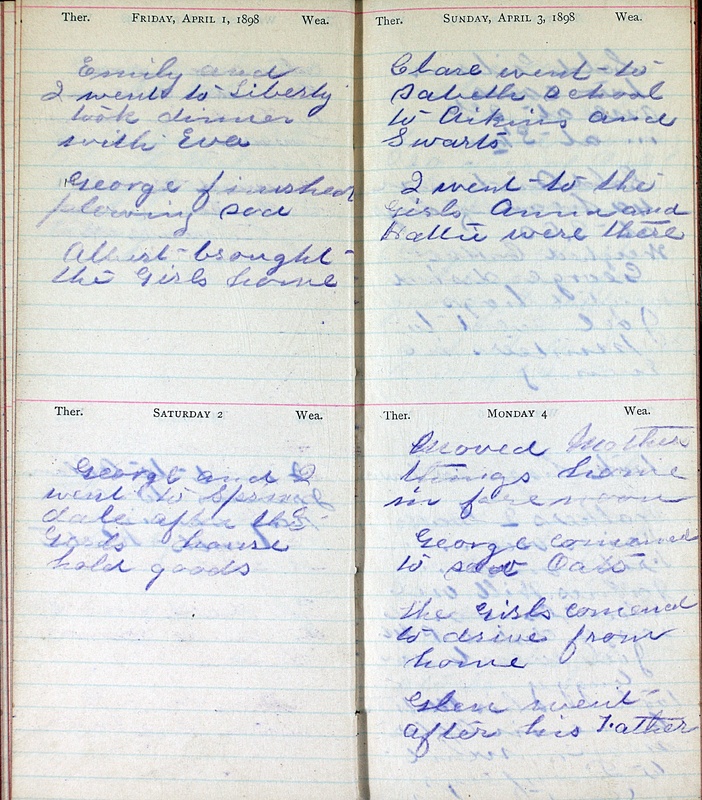 Ther. FRIDAY, APRIL 1, 1898 Wea.
Emily and
I went to Liberty
took dinner
with Eva
George finished
plowing sod
Albert brought
the Girls home
Ther. SATURDAY 2 Wea.
George and I
went to Spring
dale after the
Girls house
hold goods
Ther. SUNDAY, APRIL 3, 1898 Wea.
Clare went to
Sabeth School
to Aikins and
Swarts
I went to the
Girls Anna and
Hattie were there
Ther. MONDAY 4 Wea.
Moved Mother
things home
in fore noon
George comenced
to sow Oats
the Girls comencd
to drive from
home
Glen went
after his Father